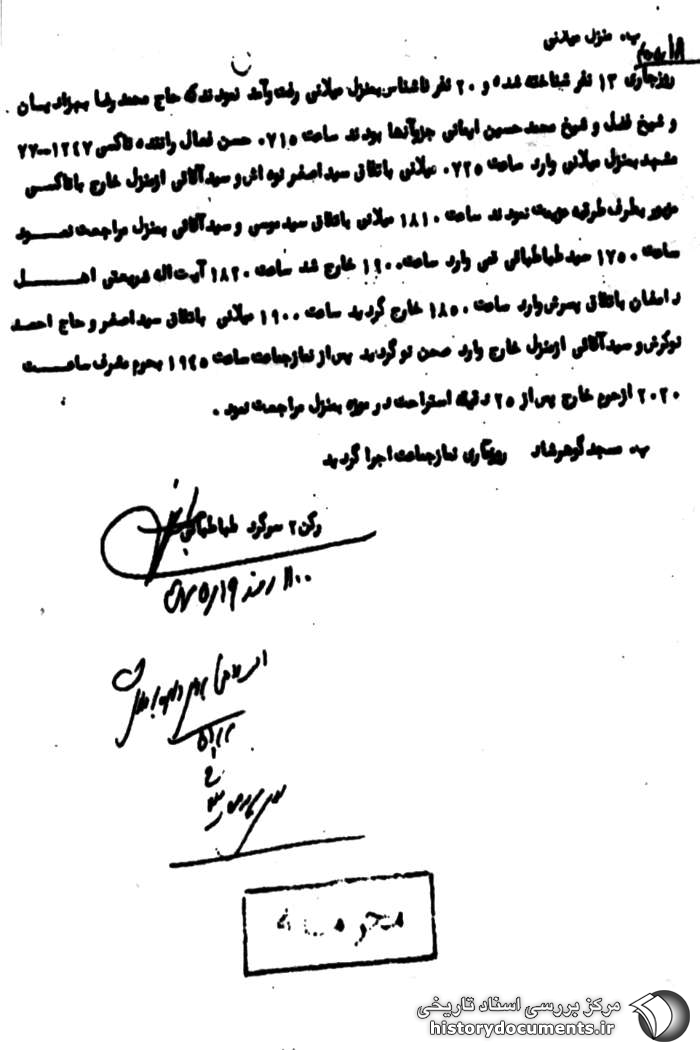 پ. منزل میلانی
روزجاری ۱۳ نفر شناخته شده و ۲۰ نفر ناشناس بمنزل میلانی رفت وآمد نمودند که حاج محمد رضا بهزادیان
و شیخ فضل و شیخ محمد حسین ایمانی جزوآنها بودند ساعت ۰۷۱۵ حسن فعال راننده تاکسی ۱۲۴۷-۷۷
مشهد بمنزل میلانی وارد ساعت ۰۷۲۵ میلانی باتفاق سید اصغر نوه اش و سید آقائی ازمنزل خارج با تاکسی
مزبور بطرف طرقبه عزیمت نمودند ساعت ۱۸۱۰ میلانی باتفاق سید موسی و سید آقائی بمنزل مراجعت نمود
ساعت ۱۷۵۰ سید طباطبائی قمی وارد ساعت ۱۹۰۰ خارج شد ساعت ۱۸۲۰ آیت اله شریعتی اهل
دامغان باتفاق پسرش وارد ساعت ۱۸۵۰ خارج گردید ساعت ۱۹۰۰ میلانی باتفاق سید اصغر و حاج احمد
نوکرش و سید آقائی ازمنزل خارج وارد صحن نو گردید پس از نماز جماعت ساعت ۱۹۴۵ بحرم مشرف ساعت
۲۰۲۰ ازحرم خارج پس از ۲۵ دقیقه استراحت در موزه بمنزل مراجعت نمود .
پ. مسجد گوهرشاد روزجاری نماز جماعت اجرا گردید
رکن ۲ سرگرد طباطبائی
محرمانه
مرکز بررسی اسناد تاریخی
historydocuments.ir